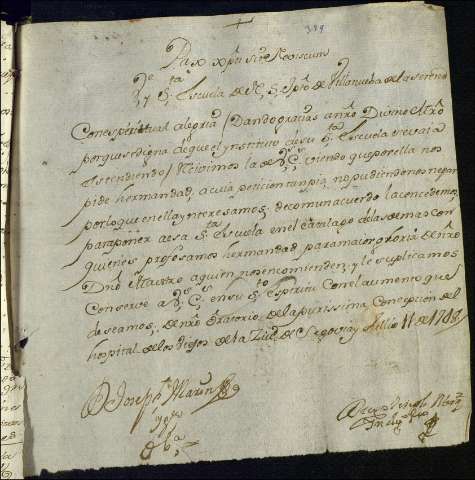 +
Pax xpti sit Nobiscum
y Sta. Escuela de Je. S. Xpto de Villanueba de la serena
Con espiritual alegria / Dando gracias a nro Divino Mtro
porque se digna de que el ynstituto de su sta Escuela vaia
Ascendiendo / Recivimos la de Vs. Cs. viendo que por ella nos
pide hermandad, a cuia peticion tan pia, no pudiendonos negar
por lo que en ella ynteresamos, de comun acuerdo la concedemos,
para poner a esa sta Escuela en el Catalago de las demas con
quienes profesamos hermandad para maior gloria de nro
Dno Maestro a quien nos encomienden, y le suplicamos
Conserve a Vs. Cs. en su sto Espiritu Con el aumento que
deseamos. de nro Oratorio de la purissima Concepcion del
hospital de los Viejos de la Ziud de Segovia y Julio 11 de 1748
D Joseph Marin
Oba